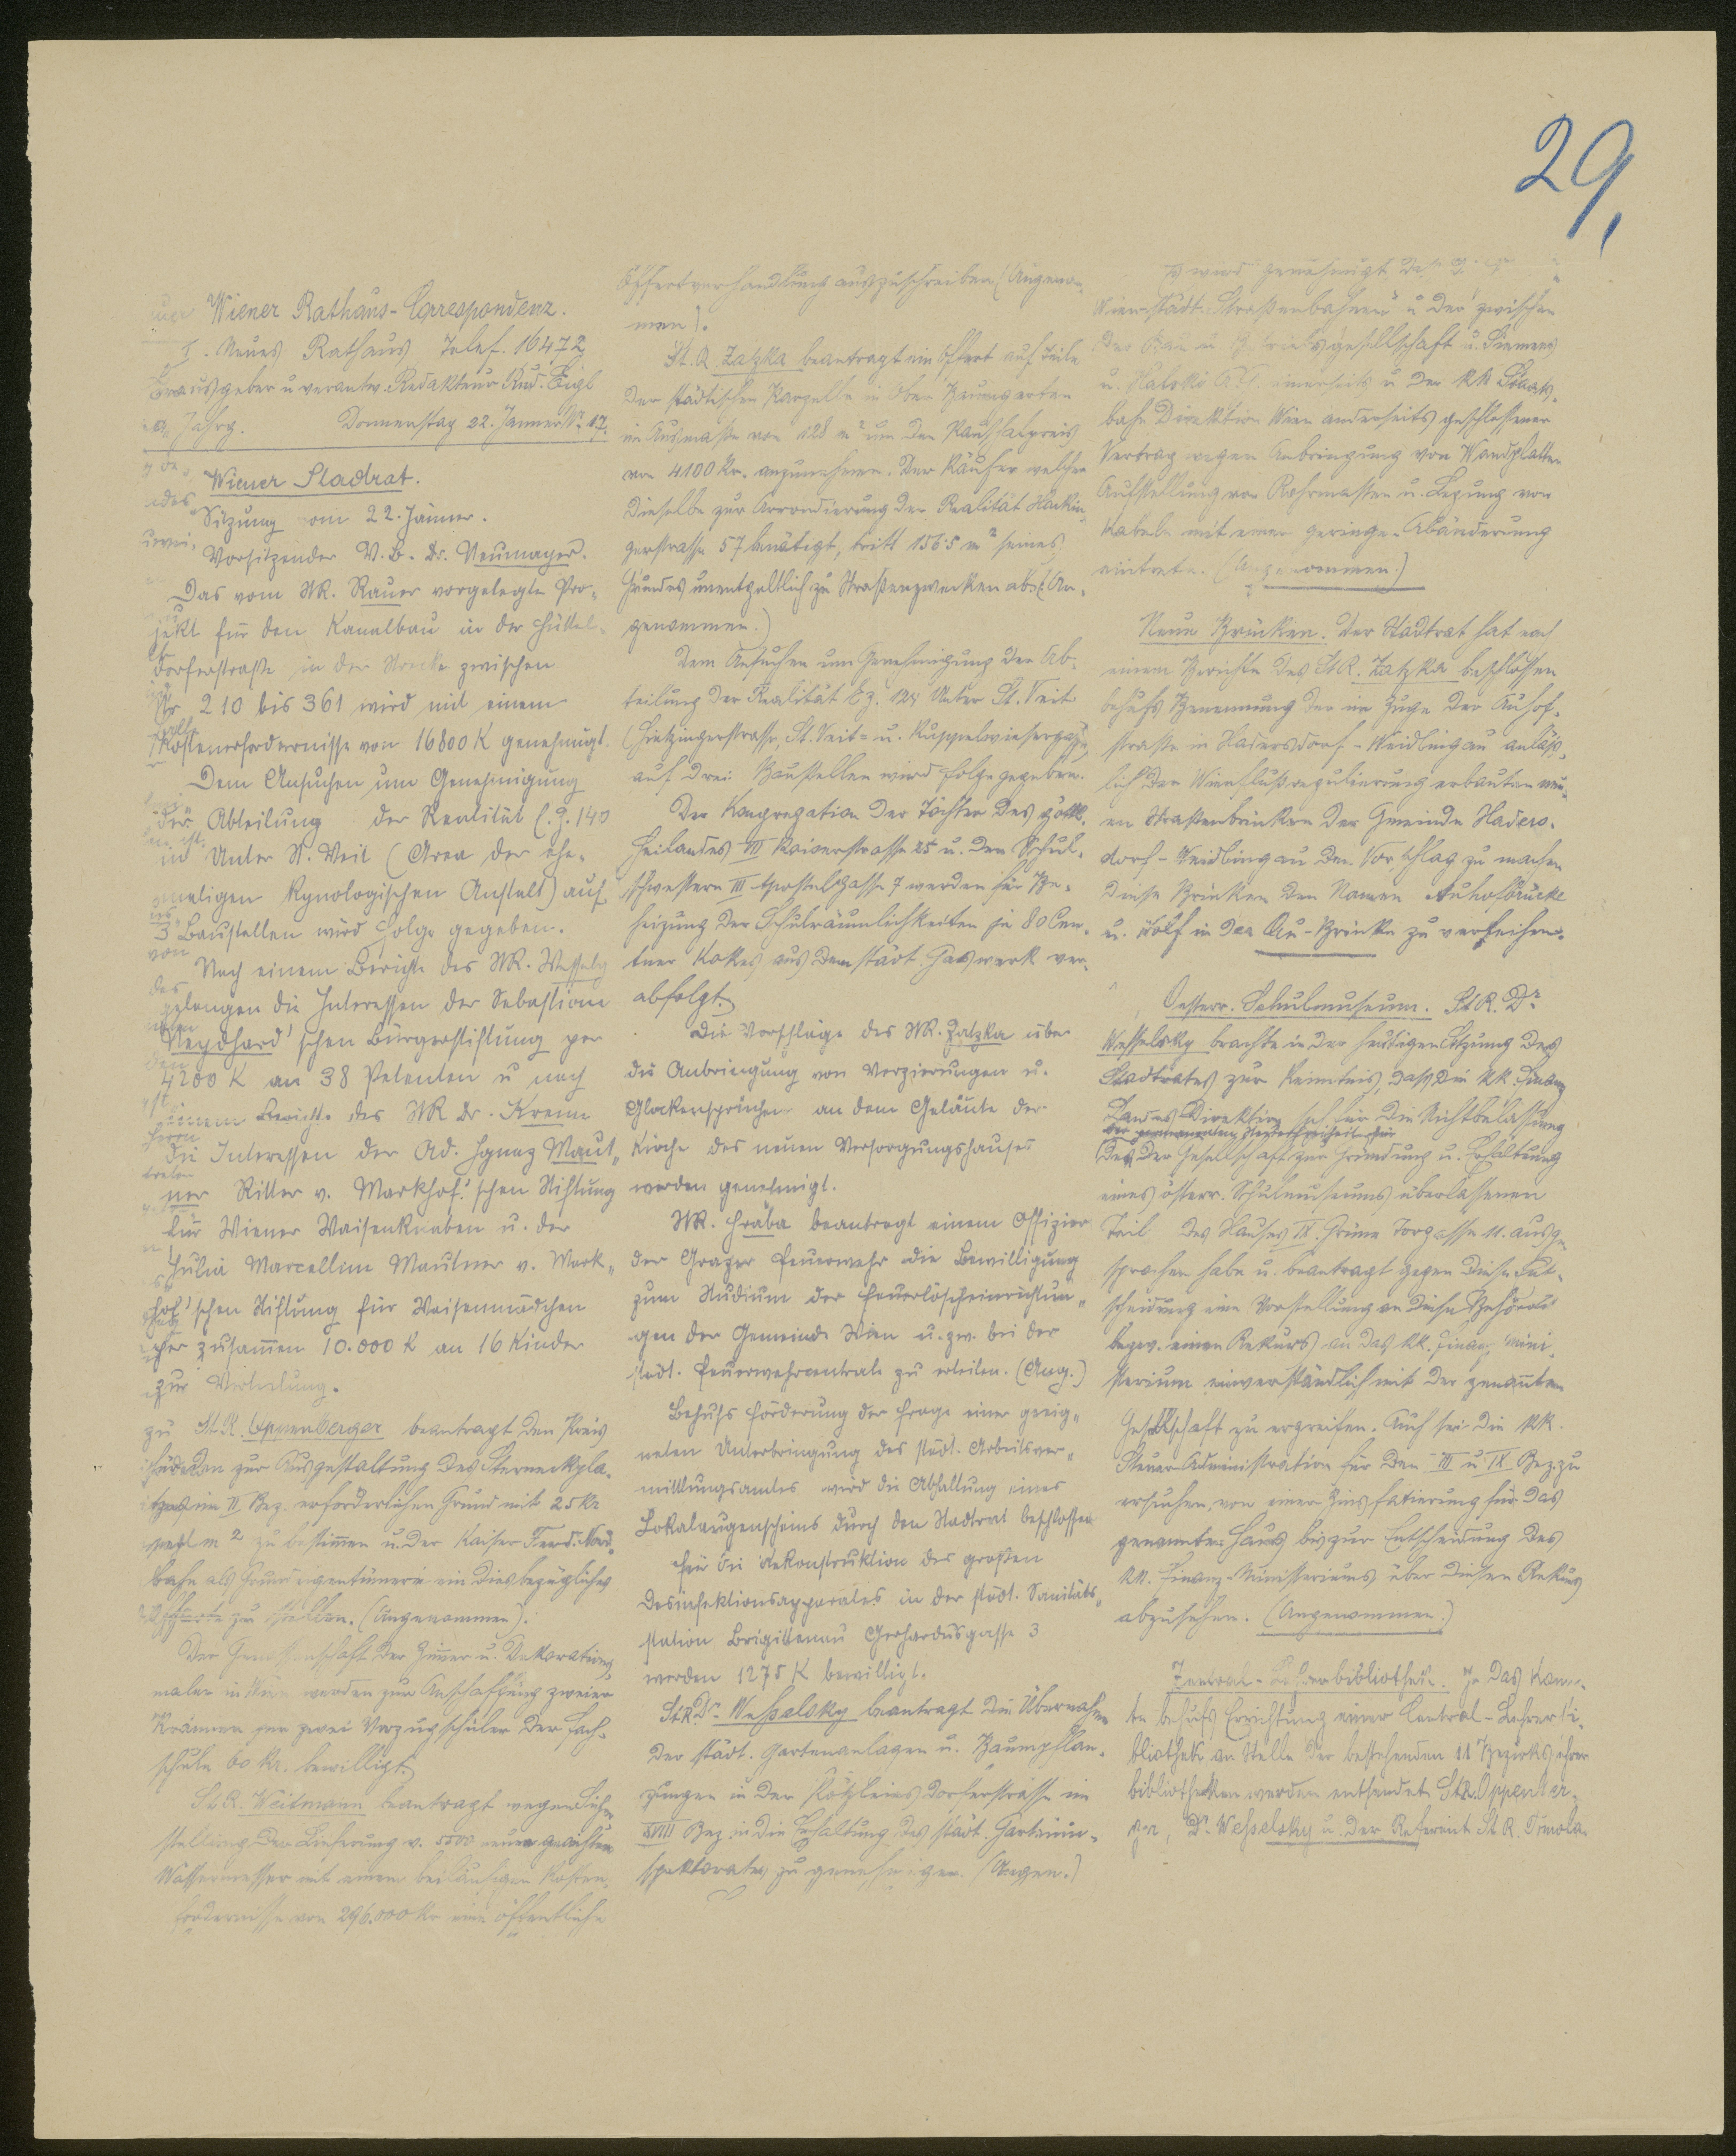 29,
Wiener Rathaus-Correspondenz.
I. Neues Rathaus Telef. 16472
Herausgeber u verantw. Redakteur Rud. Eigl
Jahrg. Donnerstag 22. Jänner Nr. 17.
Wiener Stadrat.
Sitzung vom 22. Jänner.
Vorsitzender V. B. Dr. Neumayer.
Das vom StR. Rauer vorgelegte Pro-
jekt für den Kanalbau in der Hüttel-
dorferstraße in der Strecke zwischen
Nr 210 bis 361 wird mit einem
Kostenerfordernisse von 16800 K genehmigt.
Dem Ansuchen um Genehmigung
der Abteilung der Realität E.Z. 140
in Unter St. Veit (Area der ehe-
maligen Kynologischen Anstalt) auf
3 Baustellen wird Folge gegeben.
Nach einem Berichte des StR. Wessely
gelangen die Interessen der Sebastian
Neydhard'schen Bürgerstiftung per
4200 K an 38 Petenten u nach
einem Berichte des StR Dr. Krenn
die Interessen der Ad. Ignaz Maut-
ner Ritter v. Markhof'schen Stiftung
für Wiener Waisenknaben u. der
Julia Marcellina Mautner v. Mark-
hof'schen Stiftung für Waisenmädchen
per zusammen 10.000 K an 16 Kinder
zur Verteilung.
St.R. Oppenberger beantragt den Preis
für den zur Ausgestaltung des Sterneckpla-
tzes im II Bez. erforderlichen Grund mit 25 Kr
per m 2 zu bestimmen u. der Kaiser Ferd. Nord-
bahn als Grundeigentümerin ein diesbezügliches
Offerte zu stellen. (Angenommen).
Der Genossenschaft der Zimmer u. Dekorations-
maler in Wien werden zur Anschaffung zweier
Prämien für zwei Vorzugschüler der Fach-
schule 60 Kr. bewilligt.
St.R. Weitmann beantragt wegen Sicher-
stellung der Lieferung v. 5500 neuen geeichten
Wassermesser mit einem beiläufigen Kosten-
erfordernisse von 296.000 Kr eine öffentliche
Offertverhandlung auszuschreiben (Angenom-
men).
St.R. Zatzka beantragt ein Offert auf Teile
der städtischen Parzelle in Ober Baumgarten
im Ausmaße von 128 m² um den Pauschalpreis
von 4100 Kr. anzunehmen. Der Käufer welcher
dieselbe zur Arrondierung der Realität Hackin-
gerstrasse 57 benötigt, tritt 156·5 m² seines
Grundes unentgeltlich zu Straßenzwecken ab. (An-
genommen.)
Dem Ansuchen um Genehmigung der Ab-
teilung der Realität Ez. 124 Unter St. Veit
(Hietzingerstrasse, St. Veit- u. Kuppelwiesergasse)
auf drei Baustellen wird Folge gegeben.
Der Kongregation der Töchter des göttl.
Heilandes VII Kaiserstrasse 25 u. den Schul-
schwestern III Apostelgasse 7 werden für Be-
heizung der Schulräumlichkeiten je 80 Cen-
tner Kokes aus dem städt. Gaswerk ver-
abfolgt.
Die Vorschläge des StR. Zatzka über
die Anbringung von Verzierungen u.
Glockensprüchen an dem Geläute der
Kirche des neuen Versorgungshauses
werden genehmigt.
StR. Hraba beantragt einem Offizier
der Grazer Feuerwehr die Bewilligung
zum Studium der Feuerlöscheinrichtun-
gen der Gemeinde Wien u. zw. bei der
städt. Feuerwehrcentrale zu erteilen. (Ang.)
Behufs Förderung der Frage einer geeig-
neten Unterbringung des städt. Arbeitsver-
mittlungsamtes wird die Abhaltung eines
Lokalaugenscheins durch den Stadtrat beschlossen
Für die Rekonstruktion des großen
Desinfektionsapparates in der städt. Sanitäts-
station Brigittenau Gerhardusgasse 3
werden 1275 K bewilligt.
StR. Dr. Wesselsky beantragt die Übernahme
der städt. Gartenanlagen u. Baumpflan-
zungen in der Pötzleinsdorferstrasse im
XVIII Bez. in die Erhaltung des städt. Garten-
spektorates zu genehmigen. (Angen.)
wird genehmigt
Wien städt. Straßenbahnen u der zwischen
der Bau u Betriebsgesellschaft u. Siemens
u. Halske A.G. einerseits u der kk Staats-
bahn Direktion Wien anderseits geschlossener
Vertrag wegen Anbringung von Wandplatten
Aufstellung von Rohrmasten u. Legung von
Kabeln mit einer geringen Abänderung
eintrete. (Angenommen.)
Neue Brücken. Der Stadtrat hat nach
einem Berichte des StR. Zatzka beschlossen
behufs Benennung der im Zuge der Auhof-
straße in Hadersdorf-Weidlingau anläß-
lich der Wienflußregulierung erbauten neu-
en Straßenbrücken der Gemeinde Haders-
dorf-Weidlingau den Vorschlag zu machen
diese Brücken den Namen Auhofbrücke
u. Wolf in der Au-Brücke zu verleihen.
Oesterr. Schulmuseum. StR. Dr.
Wesselsky brachte in der heutigen Sitzung des
Stadtrates zur Kenntnis, daß die kk. Finanz
Landes Direktion sich für die Nichtbelassung
der permanenten Steuerfreiheit für
des der Gesellschaft zur Gründung u. Erhaltung
eines österr. Schulmuseums überlassenen
Teil des Hauses IX. Grüne Torgasse 11. ausge-
sprochen habe u. beantragt gegen diese Ent-
scheidung eine Vorstellung an diese Behörde
bezw. einen Rekurs an das kk. Finanz mini-
sterium einverständlich mit der genannten
Gesellschaft zu ergreifen. Auch sei die kk.
Steuer-Administration für den VIII u. IX Bez. zu
ersuchen, von einer Zinsfatierung für das
genannte Haus bis zur Entscheidung des
kk. Finanz-Ministeriums über diesen Rekurs
abzusehen. (Angenommen.)
Zentral-Lehrerbibliothek. In das Komi-
te behufs Errichtung einer Central-Lehrerbi-
bliothek an Stelle der bestehenden 11 Bezirkslehrer
bibliotheken werden entsendet StR. Oppenber-
ger, Dr. Wesselsky u. der Referent St. R. Tomola.